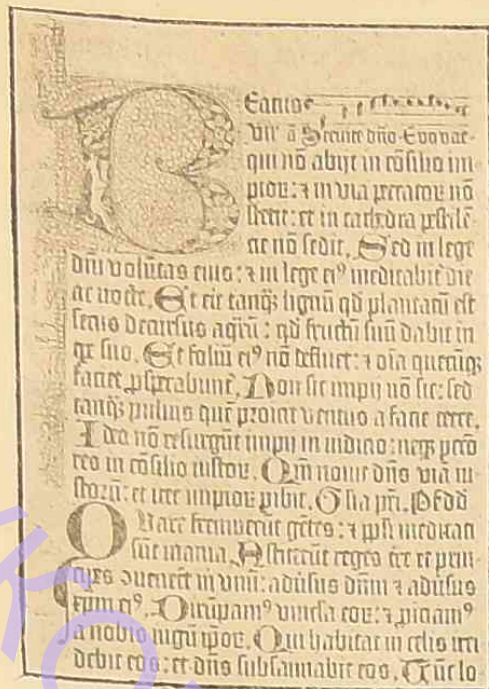 Beatus
vir ā Seruite dño Euouae
qui nō abijt in cōsilio im
pior: ⁊ in via pctator nō
stetit: et in cathedra pestilē
tie nō sedit, Sed in lege
dñi volūtas eius: ⁊ in lege ei⁹ meditabit̄ die
ac nocte, Et erit tanq̄ʒ lignū qd̄ plantatū est
secus decursus aq̄rū: qd̄ fructū suū dabit in
tꝑe suo, Et foliū ei⁹ nō defluet: ⁊ oīa quecūq̄ʒ
faciet ꝓsperabunt̄, Non sic impij nō sic: sed
tanq̄ʒ puluis quē proicit ventus a facie terre,
Ideo nō resurgūt impij in iudicio: neqʒ pctō
res in cōsilio iustor, Qm̄ nouit dñs viā iu
storū: et iter impior ꝑibit, Glia pr̄i,
Quare fremuerūt gētes: ⁊ ppli meditati
sūt inania, Astiterūt reges tr̄e et prin
cipes ꝯuenerūt in vnū: aduersus dñm ⁊ aduersus
xpm ei⁹, Dirūpam⁹ vincla eor: ⁊ ꝓiciam⁹
a nobis iugū ipor, Qui habitat in celis irri
debit eos: et dñs subsannabit eos, Tūc lo